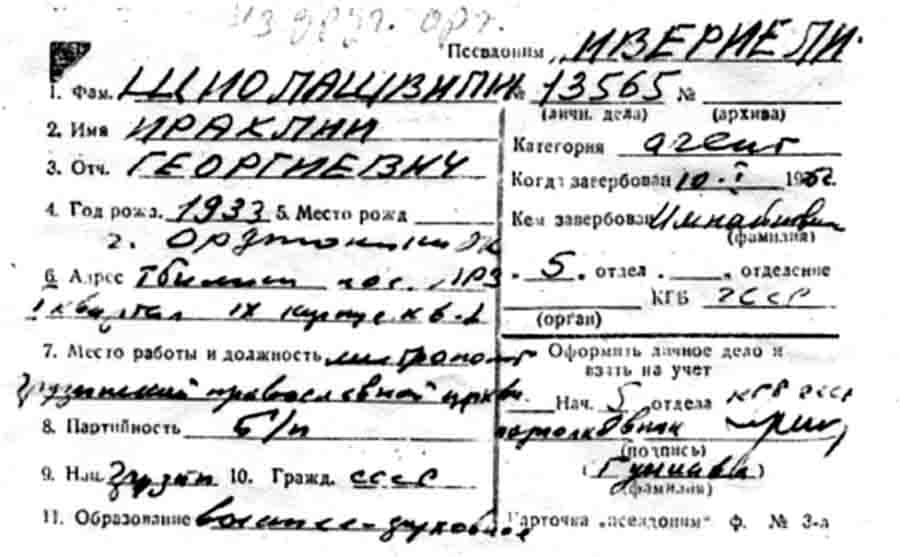 из друг. орг.
Псевдоним „ИВЕРИЕЛИ“
1. Фам. ШИОЛАШВИЛИ
№ 13565 №
(личн. дела) (архива)
2. Имя ИРАКЛИЙ
Категория агент
3. Отч. ГЕОРГИЕВИЧ
Когда завербован 10.I 1962.
4. Год рожд. 1933 5. Место рожд
Кем завербован
(фамилия)
г. Орджоникидзе
6. Адрес Тбилиси пос.
„5„ отдел „ „ отделение
I квартал IX корпус кв.
КГБ ГССР
(орган)
7. Место работы и должность митрополит
Грузинской православной церкви
Оформить личное дело и
взять на учет
Нач. 5 отдела КГБ ГССР
8. Партийность б/п
подполковник
(подпись)
9. Нац. грузин 10. Гражд. СССР
(фамилия)
11. Образование высшее-духовное
Карточка „псевдоним“ ф. № 3-а